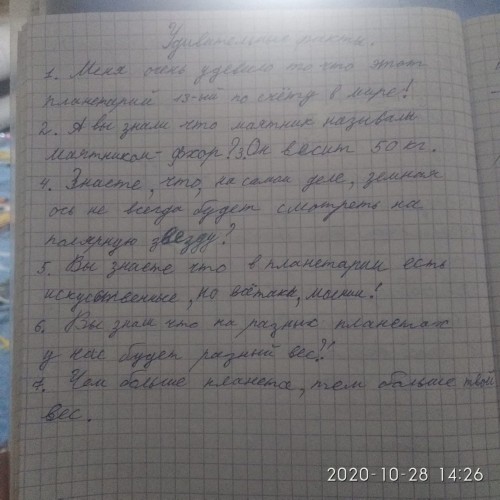 Удивательные факты.
1. Меня очень удевило то что этот
планетарий 13-ый по счёту в мире!
2. А вы знали что маятник называли
Маятником- фкор? 3. Он весит 50 кг.
4. Знаете, что, на самом деле, земная
ось не всегда будет смотреть на
полярную звезду?
5. Вы знаете что в планетарии есть
искуственные, но
6. Вы знали что на разных планетах
у нас будет разный вес?!
7. Чем больше планета, тем больше твой
вес.
2020-10-28 14:26